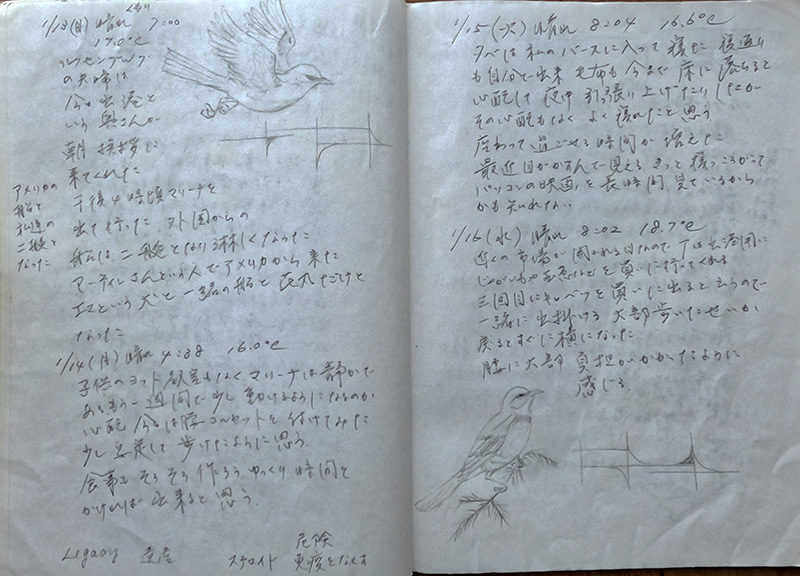 くもり
1/13(日) 晴れ 7:00
17.0°C
ルクセンブルグ
の夫婦は
今日出港と
いう 奥さんが
朝 挨拶に
来てくれた
午後4時頃マリーナを
出て行った 外国からの
船は二艇となり淋しくなった
マーティンさんという人でアメリカから来た
という犬と一緒の船と 花丸だけと
なった
アメリカの
船と
私達の
二艇と
なった
1/14(月) 晴れ 4:38 16.0°C
子供のヨット もなく マリーナは静かで
ある もう一週間で少し動けるようになるのか
心配 今日は腰コルセットを付けてみた
少し安定して歩けたように思う
食事も そろそろ作ろう ゆっくり時間を
かければ出来ると思う
Legacy 遺産
危険
ステロイド 免疫をなくす
1/15(火) 晴れ 8:04 16.6°C
夕べは私のバースに入って寝た 寝返り
も自分で出来 毛布も今まで床に落ちると
心配して夜中引張り上げたりしたが
その心配もなく よく寝れたと思う
座わって過ごせる時間が増えた
最近目がかすんで見える きっと寝っころがって
パソコンの映画を長時間見ているから
かも知れない
1/16(水) 晴れ 8:02 18.7°C
近くの市場が開かれる日なので Tは出港用に
じゃがいも 玉ねぎなどを買いに行ってくれる
三回目にキャベツを買いに出ると云うので
一緒に出掛ける 大部歩いたせいか
戻るとすぐに横になった
腰に大部負担がかかったように
感じる